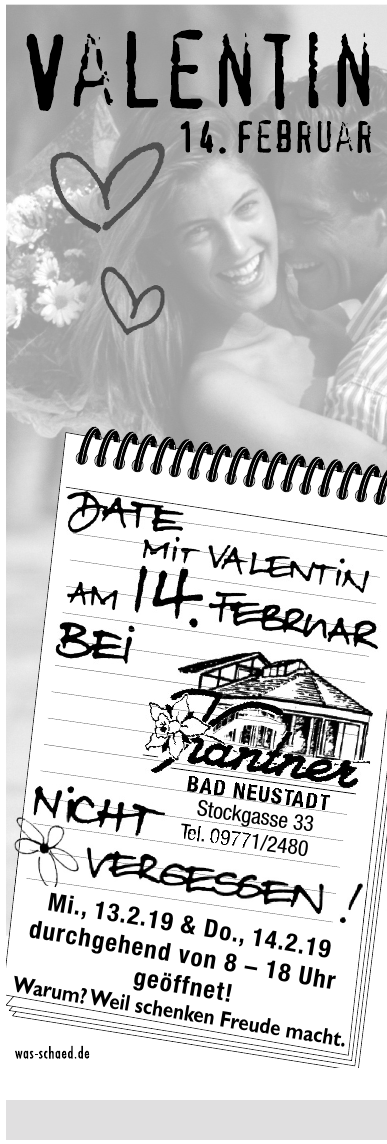 VALENTIN
14. FEBRUAR
DATE
MIT VALENTIN
AM 14. FEBRUAR
BEI
Trantner
BAD NEUSTADT
Stockgasse 33
Tel. 09771/2480
NICHT
VERGESSEN!
Mi., 13.2.19 & Do., 14.2.19
durchgehend von 8 – 18 Uhr
geöffnet!
Warum? Weil schenken Freude macht.
was-schaed.de